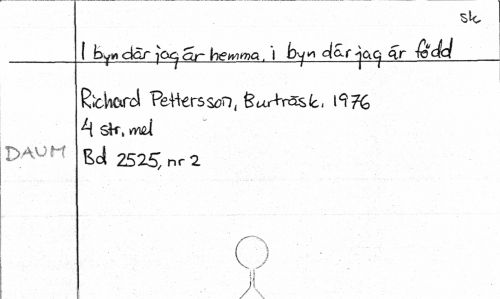 sk
I byn där jag är hemma, i byn där jag är född
Richard Pettersson, Burträsk, 1976
4 str, mel
DAUM Bd 2525, nr 2